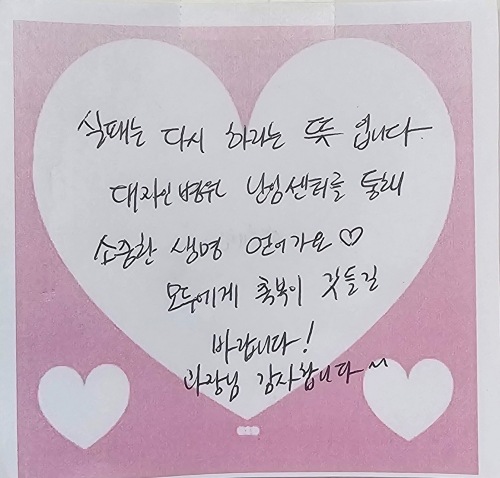 실패는 다시 하라는 뜻 입니다.
대자인병원 난임센터를 통해
소중한 생명 얻어가요♡
모두에게 축복이 깃들길
바랍니다!
과장님 감사합니다~